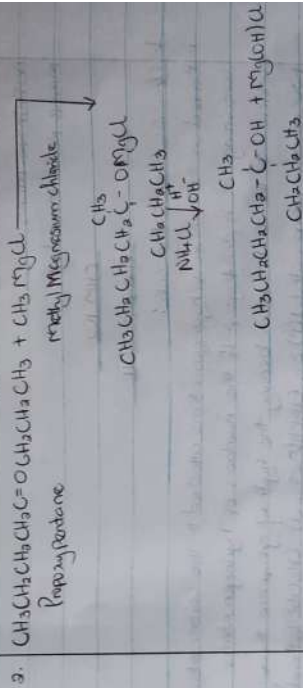 2. CH3CH2CH2CH2C=OCH2CH2CH3 + CH3MgCl
Propoxypentane
methyl Magnesium chloride
CH3
CH3CH2CH2CH2C-OMgCl
CH2CH2CH3
NH4Cl H+
OH-
CH3
CH3CH2CH2CH2-C-OH + Mg(OH)Cl
CH2CH2CH3